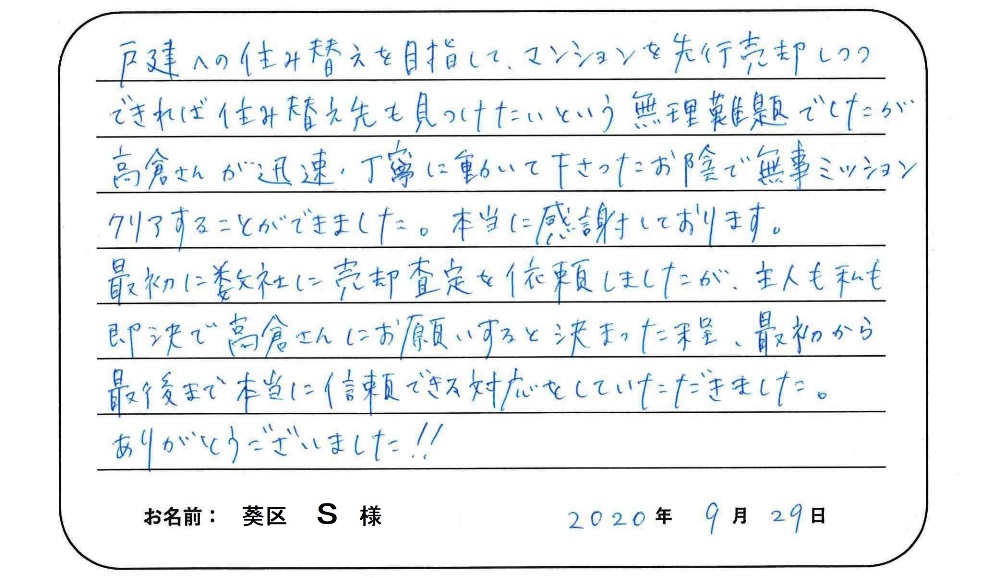 戸建への住み替えを目指して、マンションを先行売却しつつ
できれば住み替え先も見つけたいという無理難題でしたが
高倉さんが迅速・丁寧に動いて下さったお陰で無事ミッション
クリアすることができました。本当に感謝しております。
最初に数社に売却査定を依頼しましたが、主人も私も
即決で高倉さんにお願いすると決まった程、最初から
最後まで本当に信頼できる対応をしていただきました。
ありがとうございました!!
お名前: 葵区 S 様 2020年 9月 29日